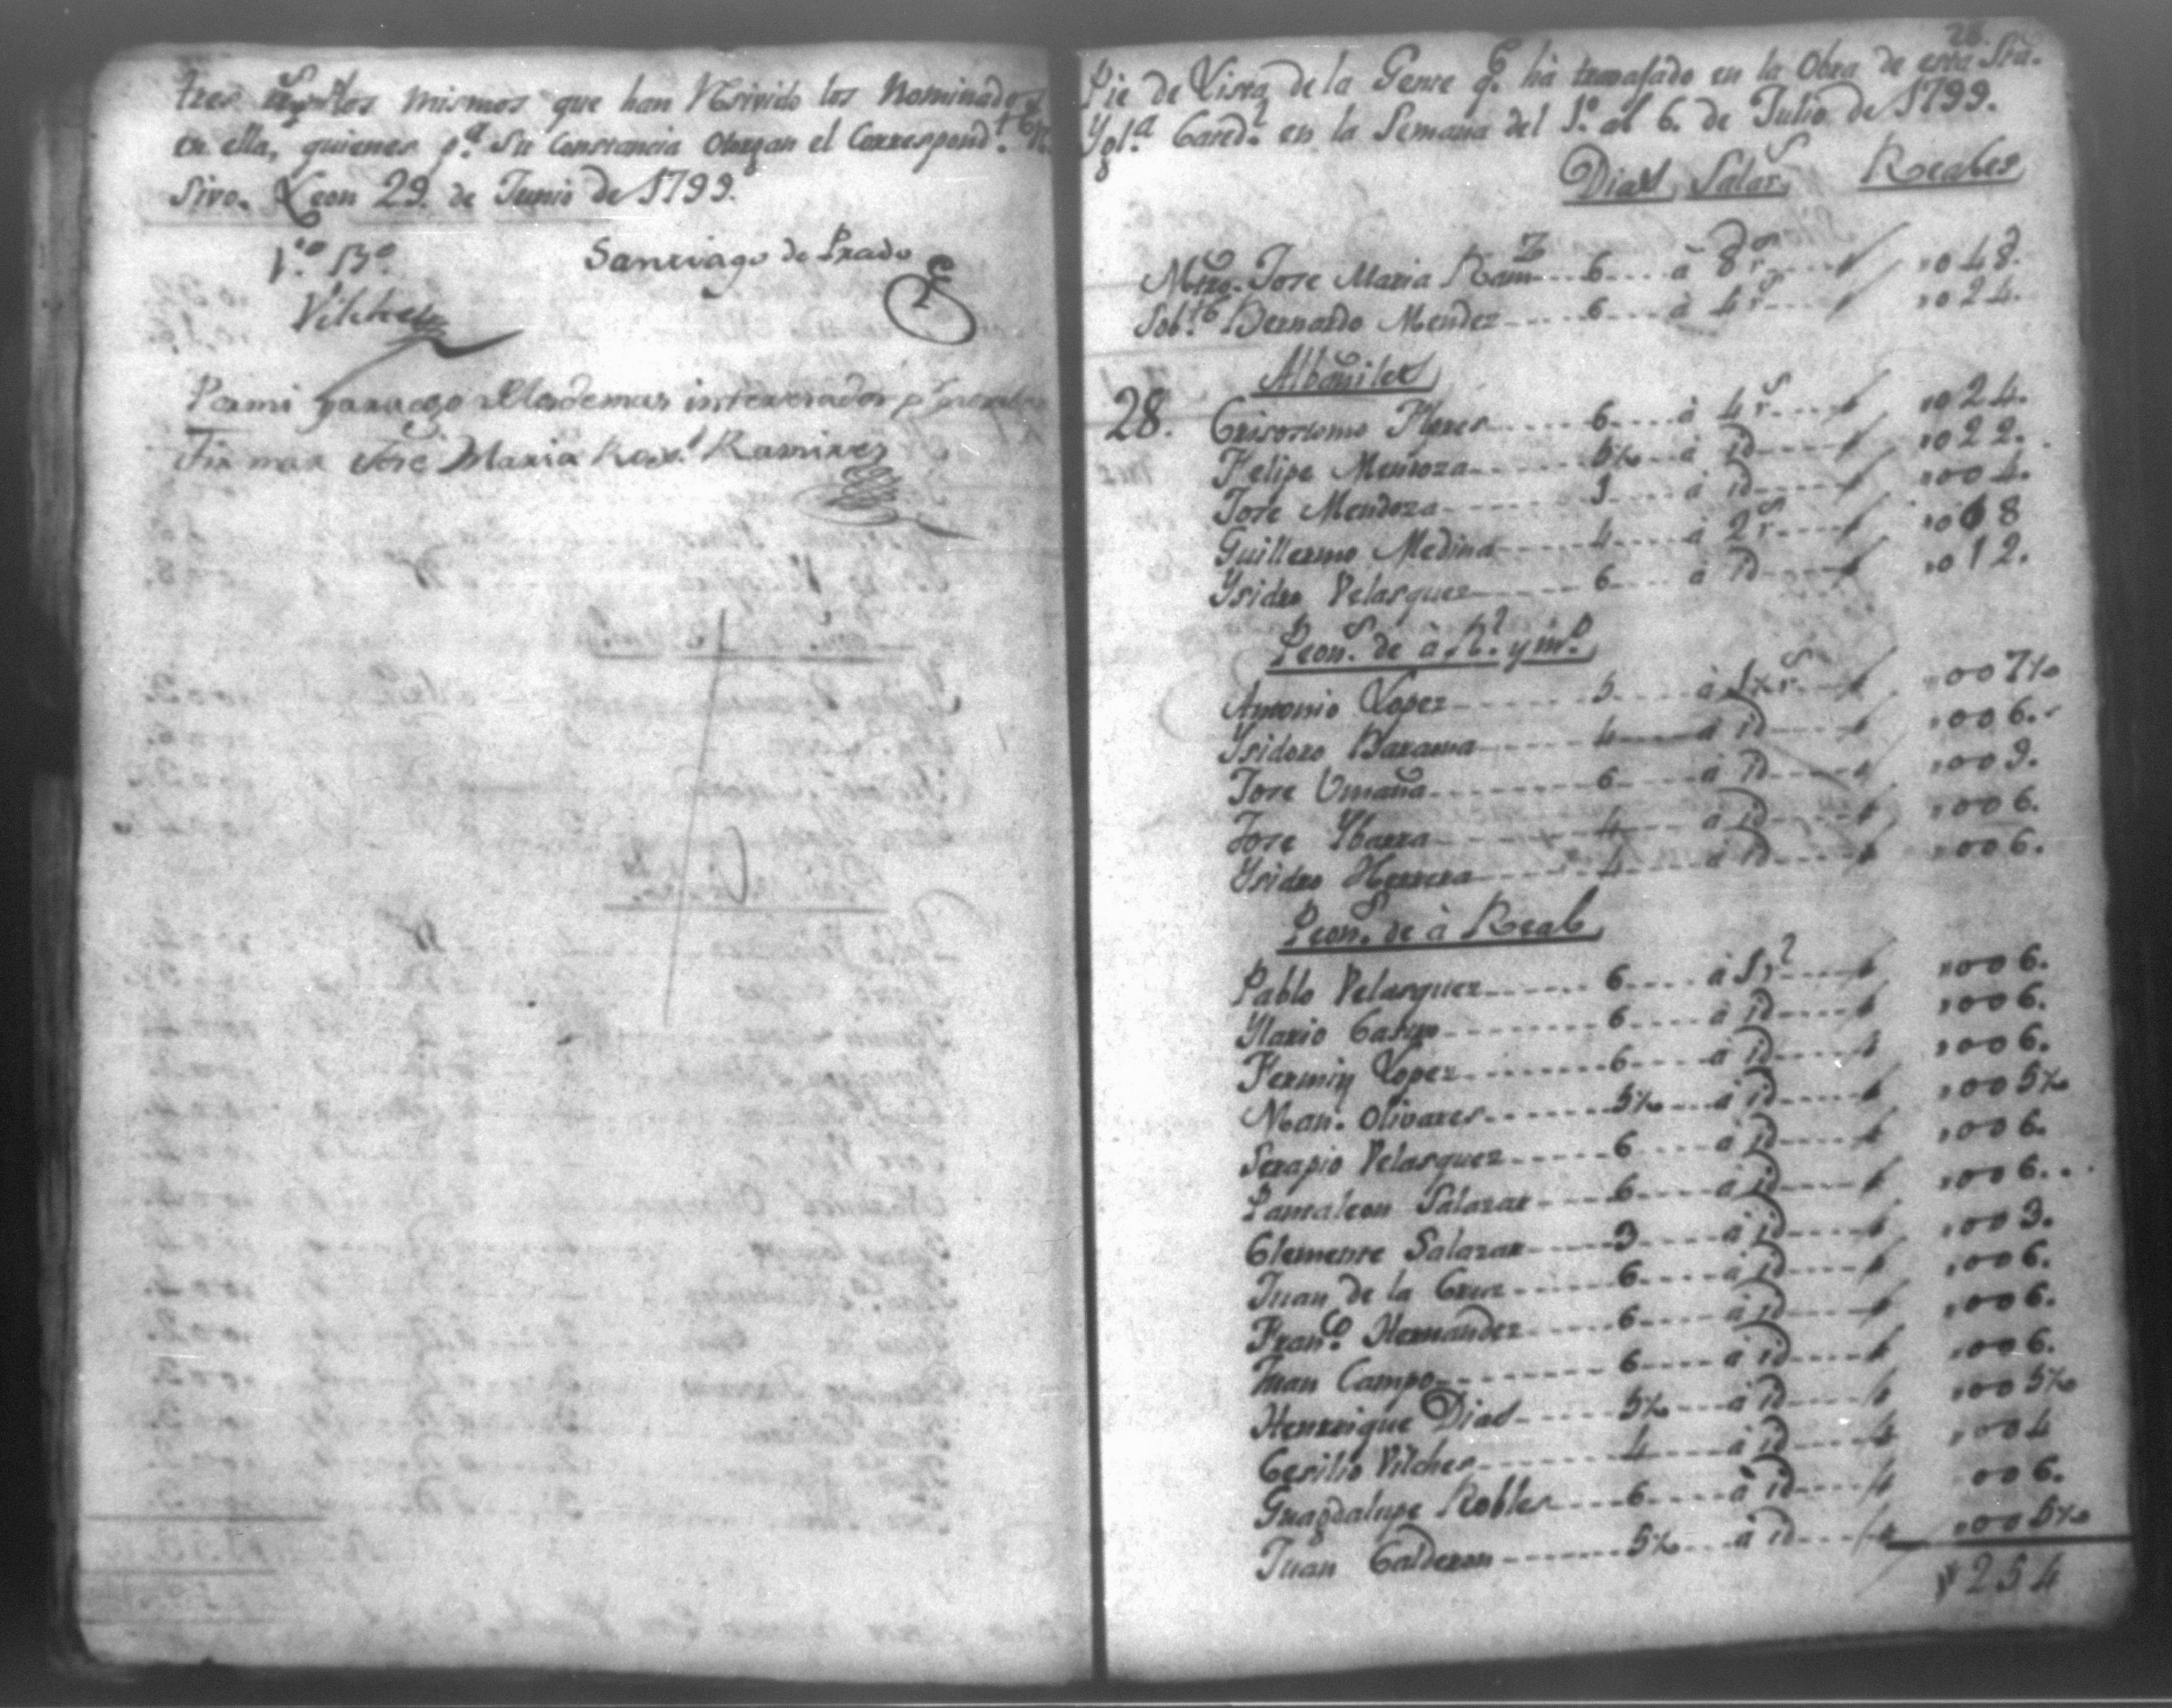 tres rr.s los mismos que han Resivido los Nominados
en ella, quienes p.a su Constancia Otorgan el Correspond.te Re
sivo. Leon 29. de Junio de 1799.
V.to B.o
Santiago de Prado
Vilches
Por mi y a ruego interventor
Firmar José Maria Ramirez
28.
Pie de Lista de la Gente q.e hà travajado en la Obra de esta Sta.
Ygl.a Cated.l en la Semana del 1.o al 6. de Julio de 1799.
Dias, Salar.s Reales
Mtro. Jose Maria Ram.z 6 à 8 r.s 048.
Sob.te Bernardo Mendez 6 à 4 r.s 024.
Albañiles
28. Crisostomo Flores 6 à 4 r.s 024.
Felipe Mendoza 5½ à id 022.
Jose Mendoza 1 à id 004.
Guillermo Medina 4 à 2 r.s 008
Ysidro Velasquez 6 à id 012.
Peon.s de à R.l y m.o
Antonio Lopez 5 à 1½ r.s 007½
Ysidoro Baraona 4 à id 006.
Jose Umaña 6 à id 009.
Jose Ybarra 4 à id 006.
Ysidro Herrera 4 à id 006.
Peon.s de à Real
Pablo Velasquez 6 à 1 r.l 006.
Ylario Castro 6 à id 006.
Fermin Lopez 6 à id 006.
Man. Olivares 5½ à id 005½
Serapio Velasquez 6 à id 006.
Pantaleon Salazar 6 à id 006.
Clemente Salazar 3 à id 003.
Juan de la Cruz 6 à id 006.
Fran.co Hernandez 6 à id 006.
Juan Campo 6 à id 006.
Henrrique Dias 5½ à id 005½
Cesilio Vilches 4 à id 004
Guagdalupe Robles 6 à id 006.
Juan Calderon 5½ à id 005½
254